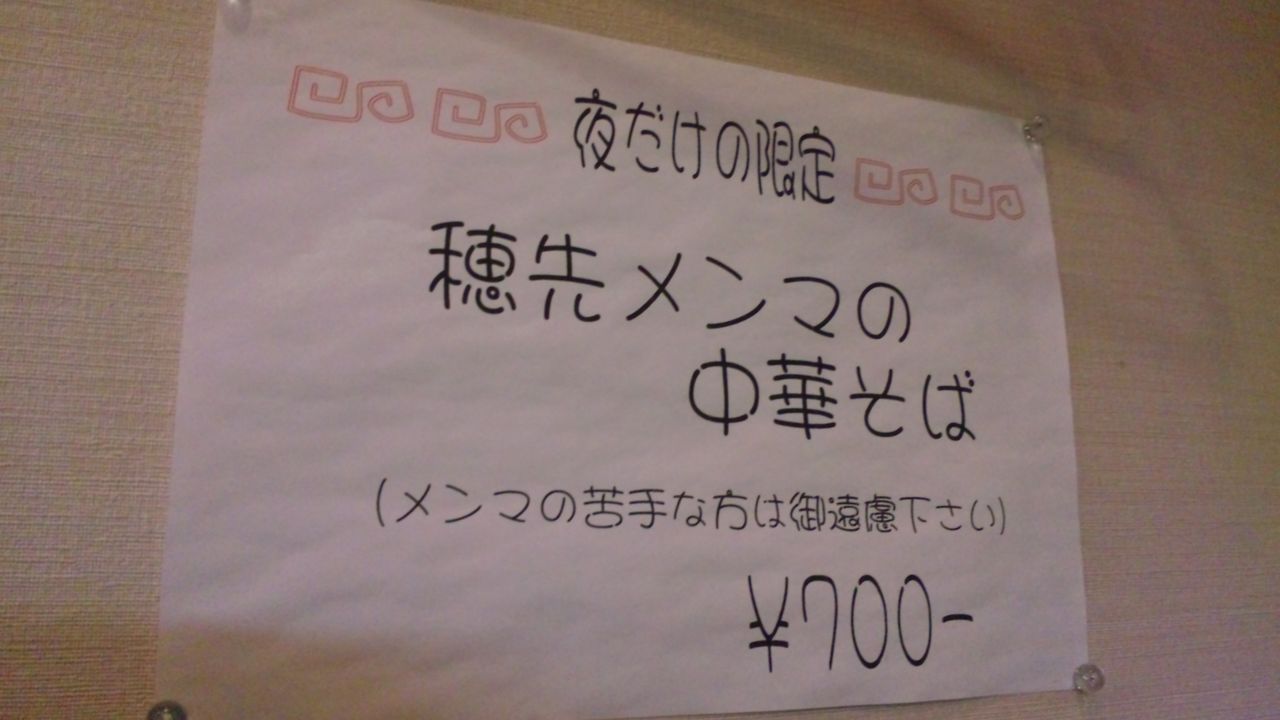 夜だけの限定
穂先メンマの
中華そば
(メンマの苦手な方は御遠慮下さい)
¥700-